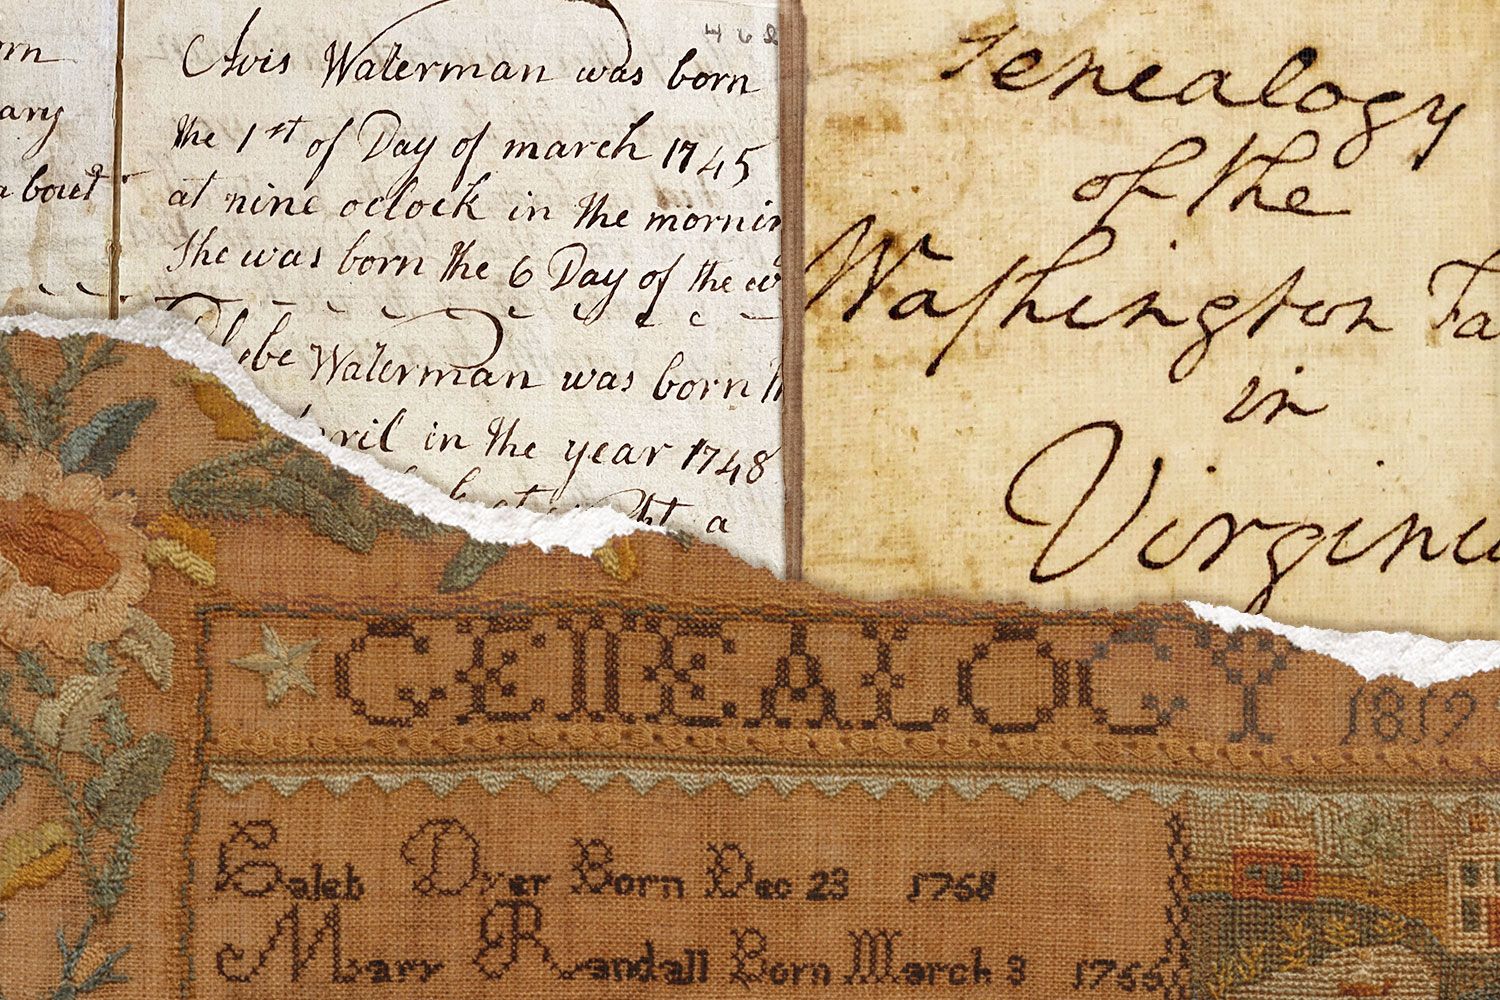 rn
ary
about
462
Avis Waterman was born
the 1st of Day of march 1745
at nine oclock in the mornin
She was born the 6 Day of the w
Phebe Waterman was born th
April in the year 1748
at a
Genealogy
of the
Washington Fa
in
Virginia
GENEALOGY 1819
Caleb Dyer Born Dec 23 1768
Mary Randall Born March 3 1766